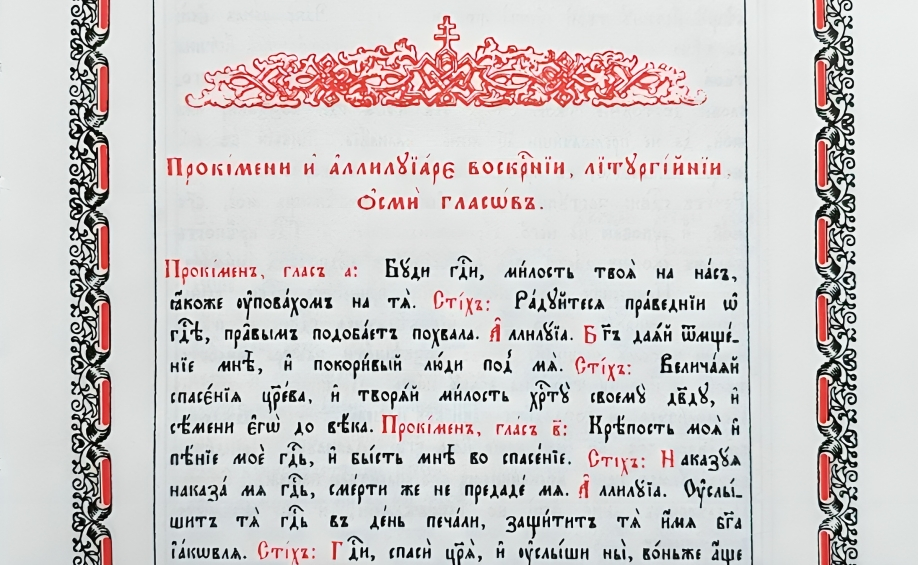 Прокі́мени и҆ а҆ллилꙋїа́рє воскр҇нїи, лїтꙋргі́йнїи,
Ѻ҆сми̑ гласѡ́въ.
Прокі́менъ, гла́съ а҃: Бꙋ́ди гдⷭ҇и, ми́лость твоѧ̀ на на́съ,
ꙗ҆́коже ᲂу҆пова́хомъ на тѧ̀. Сті́хъ: Ра́дꙋйтесѧ пра́веднїи ѡ҆
гдⷭ҇ѣ, пра̑вымъ подоба́етъ похвала̀. А҆ллилꙋ́їа. Бг҃ъ даѧ́й ѿмще́-
нїе мнѣ̀, и҆ покори́вый лю́ди под̾ мѧ̀. Сті́хъ: Велича́ѧй
спасє́нїѧ цр҃е́ва, и҆ творѧ́й ми́лость хрⷭ҇тꙋ̀ своемꙋ̀ дв҃дꙋ, и҆
сѣ́мени є҆гѡ̀ до вѣ́ка. Прокі́менъ, гла́съ в҃: Крѣ́пость моѧ̀ и҆
пѣ́нїе моѐ гдⷭ҇ь, и҆ бы́сть мнѣ̀ во спасе́нїе. Сті́хъ: Наказꙋ́ѧ
наказа́ мѧ гдⷭ҇ь, сме́рти же не предаде́ мѧ. А҆ллилꙋ́їа. Оу҆слы́-
шитъ тѧ̀ гдⷭ҇ь въ де́нь печа́ли, защи́титъ тѧ̀ и҆́мѧ бг҃а
і҆а́кѡвлѧ. Сті́хъ: Гдⷭ҇и, спасѝ цр҃ѧ̀, и҆ ᲂу҆слы́ши ны̀, во́ньже а҆́ще